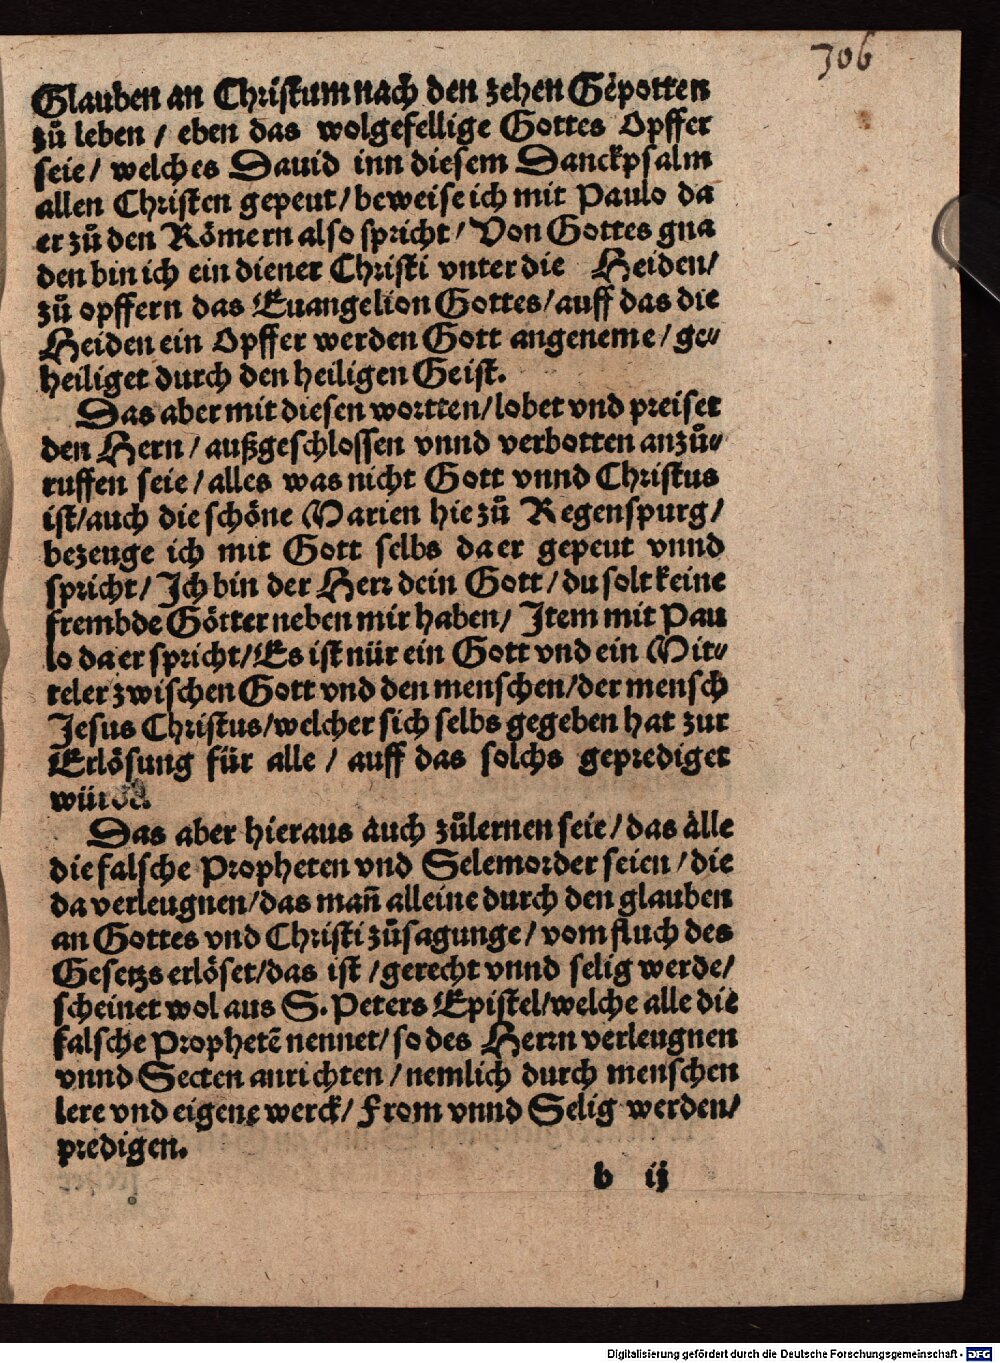 306
Glauben an Christum nach den zehen Gepotten
zů leben / eben das wolgefellige Gottes Opffer
seie / welches Dauid inn diesem Danckpsalm
allen Christen gepeut / beweise ich mit Paulo da
er zů den Römern also spricht / Von Gottes gna
den bin ich ein diener Christi vnter die Heiden /
zů opffern das Euangelion Gottes / auff das die
Heiden ein Opffer werden Gott angeneme / ge⸗
heiliget durch den heiligen Geist.
Das aber mit diesen wortten / lobet vnd preiset
den Hern / außgeschlossen vnnd verbotten anzů⸗
ruffen seie / alles was nicht Gott vnnd Christus
ist / auch die schöne Marien hie zů Regenspurg /
bezeuge ich mit Gott selbs da er gepeut vnnd
spricht / Ich bin der Herr dein Gott / du solt keine
frembde Götter neben mir haben / Item mit Pau
lo da er spricht / Es ist nür ein Gott vnd ein Mit⸗
teler zwischen Gott vnd den menschen / der mensch
Jesus Christus / welcher sich selbs gegeben hat zur
Erlösung für alle / auff das solchs geprediget
würde.
Das aber hieraus auch zůlernen seie / das alle
die falsche Propheten vnd Selemorder seien / die
da verleugnen / das man̄ alleine durch den glauben
an Gottes vnd Christi zůsagunge / vom fluch des
Gesetzs erlöset / das ist / gerecht vnnd selig werde /
scheinet wol aus S. Peters Epistel / welche alle die
falsche Prophetē nennet / so des Herrn verleugnen
vnnd Secten anrichten / nemlich durch menschen
lere vnd eigene werck / From vnnd Selig werden /
predigen.
b ij
Digitalisierung gefördert durch die Deutsche Forschungsgemeinschaft - DFG